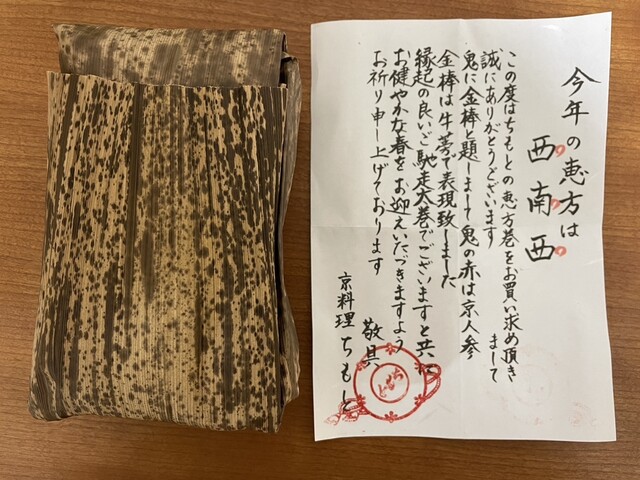 今年の恵方は
西南西
この度はちもとの恵方巻をお買い求め頂きまして
誠にありがとうございます
鬼に金棒と題しまして鬼の赤は京人参
金棒は牛蒡で表現致しました
縁起の良いご馳走太巻でございますと共に
お健やかな春をお迎えいただきますよう
お祈り申し上げております
敬具
京料理ちもと
ちもと